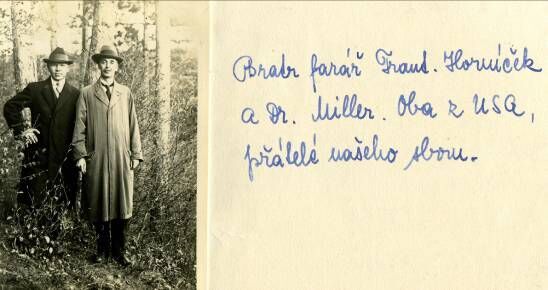 Bratr farář Frant. Horníček
a Dr. Miller. Oba z USA,
přátelé našeho sboru.